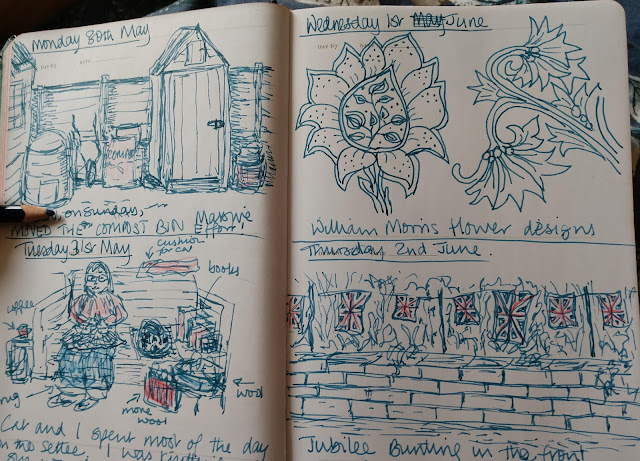 Monday 30th May
COMPOST
, on Sunday,
MOVED THE COMPOST BIN Massive Effort!
Tuesday 31st May
cushion for cat
books
coffee
rug
more wool
wool
Cat and I spent most of the day
on the settee, I was
Wednesday 1st May June
William Morris flower designs
Thursday 2nd June.
Jubilee Bunting in the front